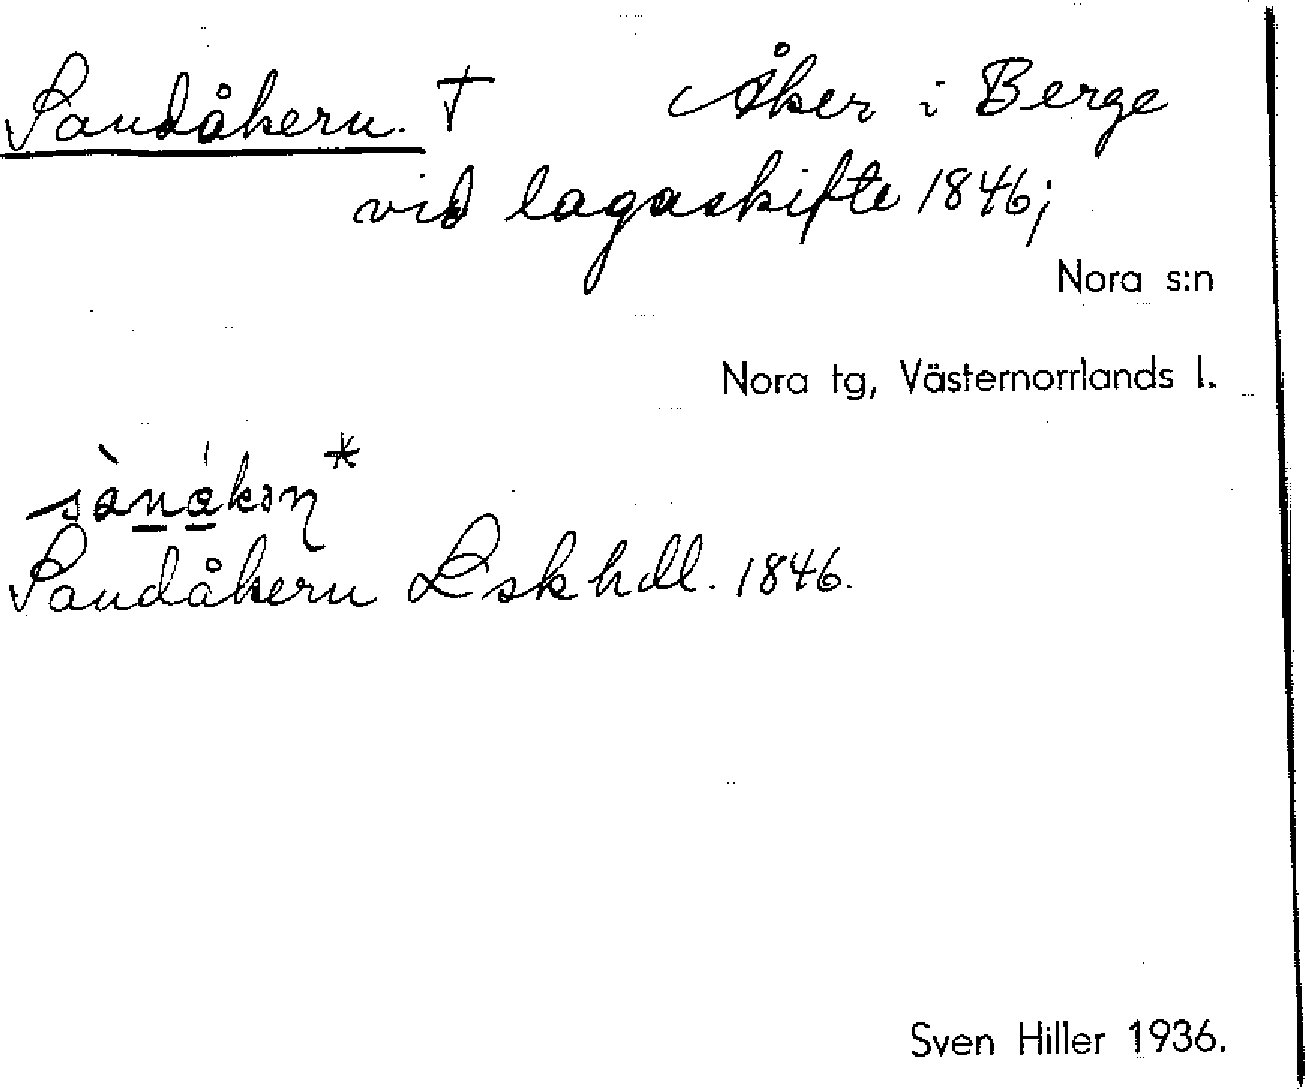 Sandåkern. † Åker i Berge
vid lagaskifte 1846;
Nora s:n
Nora tg, Västernorrlands l.
sànákən*
Sandåkern Lskhdl. 1846.
Sven Hiller 1936.